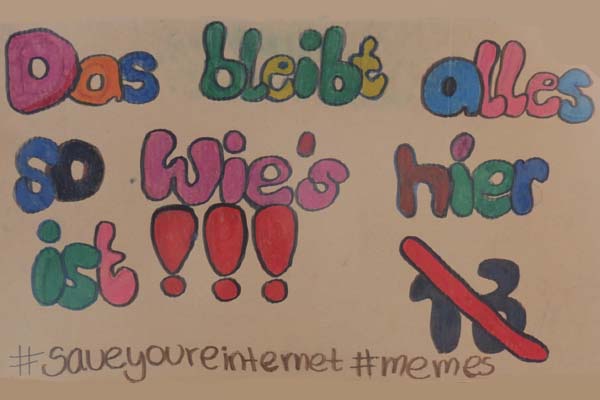 Das bleibt alles
so wie's hier
ist!!! 13
#saveyoureinternet #memes